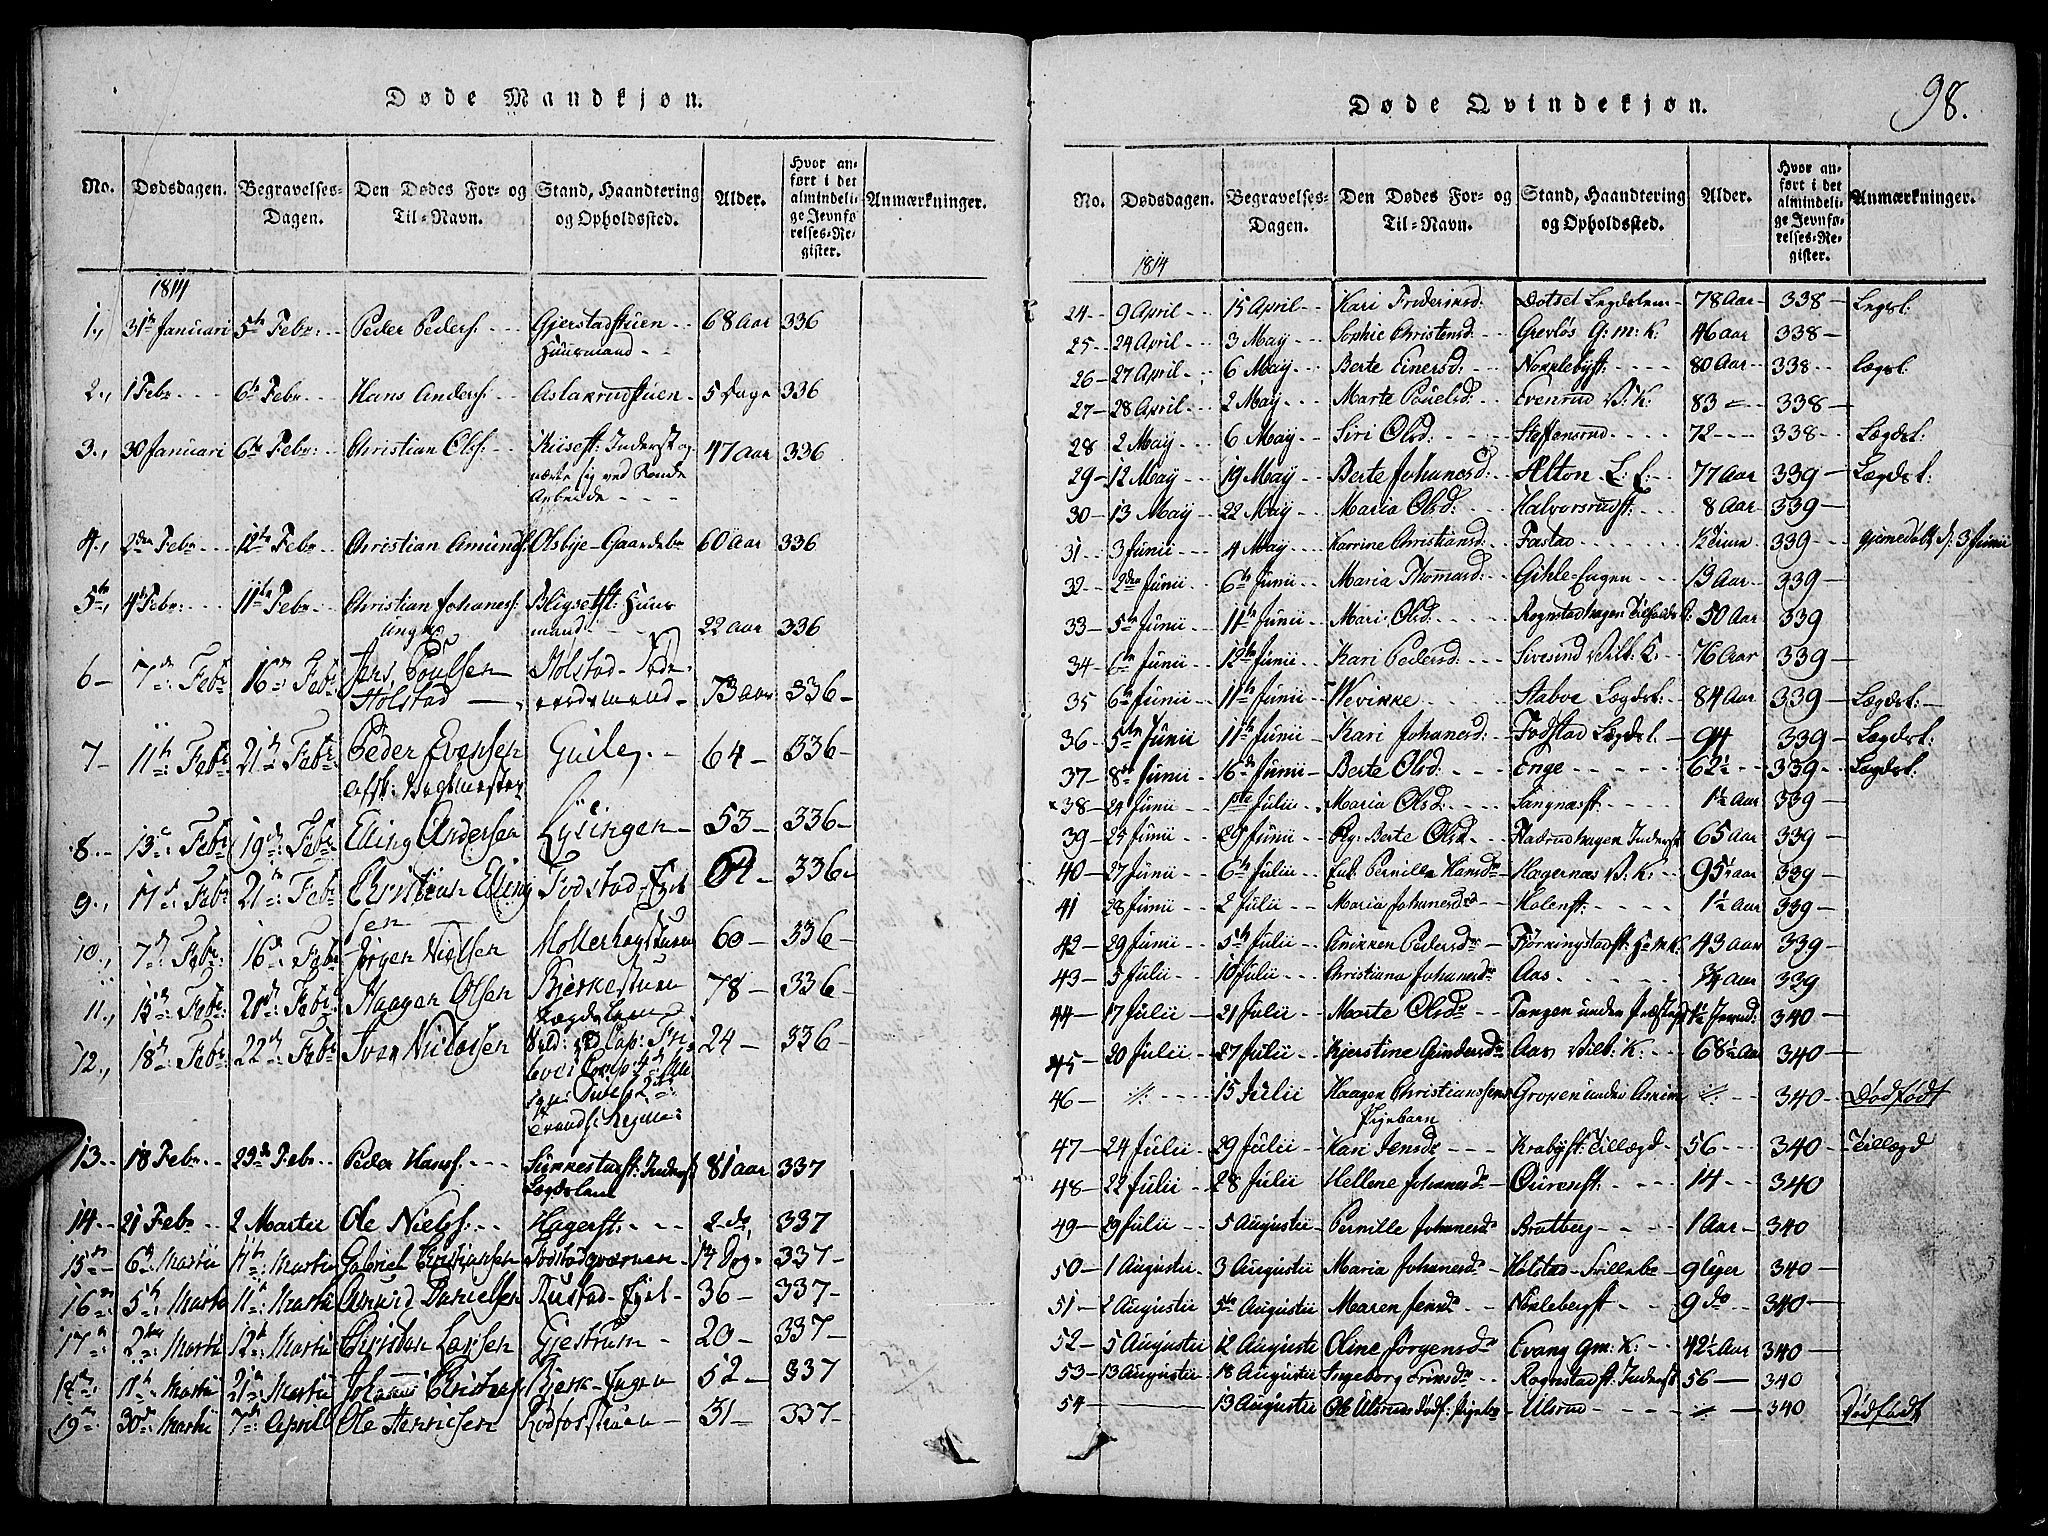 Døde Mandkjøn.
No. Dødsdagen. Begravelses-Dagen. Den Dødes For- og Til-Navn. Stand, Haandtering og Opholdssted. Alder. Hvor anført i det almindelige Jevnførelses-Register. Anmærkninger.
1814
1., 31te Januari 5te Febr: Peder Peders: Gjerstadstuen 68 Aar 336
Huusmand
2., 1 Febr 6te Febr Hans Anders: Aslakrudstuen 5 Dage 336
3., 30 Januari 6te Febr: Christian Ols: Kiisest: Inderst og 47 Aar 336
nærte sig ved Haande
Arbeide
4., 2den Febr 12te Febr Christian Amunds Olsbye Gaardebr 60 Aar 336
5te, 4te Febr: 11te Febr Christian Johanes: Bligsetst: Huus
unger mand 22 Aar 336
6 7de Febr 16de Febr Jens Poulsen Holstad
Holstad 73 aar 336
7 11te Febr 21de Febr Peder Evensen Guile 64 336
8 13de Febr 19de Febr Elling Andersen Lysingen 53 336
9., 17de Febr 21de Febr Christian Elling Fodstad Eyet 64 336
sen
10., 7de Febr: 16de Febr: Jørgen Nielsen Mollerhagstuen 60 336
11., 15de Febr 20de Febr Haagen Olsen Bjerkestuen 78 336
Lægdslem
12., 18de Febr 22de Febr Iver Nielsen 24 336
13 18 Febr 23de Febr Peder Hans: Sukkestadst: Inderst 81 aar 337
Lægdslem
14 21 Febr 2 Martii Ole Niels: Hagerst: 2 do 337
15 6te Martii 11te Martii Gabriel Christiansen Fodstadqværnen 14 Dag 337
16 5te Martii 11te Martii Amund Danielsen Rustad Eyet 36 337
17 2den Martii 12te Martii Christian Larsen Gjestrum 20 337
18 11te Martii 21de Martii Johannes Christians Bjerk-Engen 52 337
19 30de Martii 7de April Ole Henricsen Rodfosstuen 31 337
98.
Døde Qvindekjøn.
No. Dødsdagen. Begravelses-Dagen. Den Dødes For- og Til-Navn. Stand, Haandtering og Opholdssted. Alder. Hvor anført i det almindelige Jevnførelses-Register. Anmærkninger.
1814
24 9 April 15 April Kari Fredericsd: Dotset Legdslem 78 Aar 338 Legsl:
25 24 April 3 May Sophie Christensd: Grevløs G: m: K: 46 aar 338
26 27 April 6 May Berte Einersd: Nøkklebyst: 80 Aar 338 Lægsl:
27 28 April 2 May Marte Pouelsd: Evenrud V: K: 83 338
28 2 May 6 May Siri Olsd: Steffensrud 72 338 Lægdsl:
29 12 May 19 May Berte Johanesd: Alton L: L: 77 Aar 339 Lægdsl:
30 13 May 22 May Maria Olsd: Halvorsrudst: 8 Aar 339
31 3 Junii 4 May Karrine Christiansd: Fastad 339 hjemedøbt d: 3 Junii
32 2den Junii 6te Junii Maria Thommasd: Gihle-Engen 13 Aar 339
33 5te Junii 11te Junii Mari Olsd: Rognstadhagen 50 Aar 339
34 6te Junii 12te Junii Kari Pedersd: Sivesind Vilk: K: 76 Aar 339
35 6te Junii 11te Junii Wevikke Staboe Lægdsl: 84 Aar 339 Lægdsl:
36 5te Junii 11te Junii Kari Johanesd: Fodstad Legdsl 94 339 Lægdsl:
37 8de Junii 16de Junii Berte Olsd: Enge 62½ 339 Lægdsl:
38 24 Junii 1ste Julii Maria Olsd: Langnæsst 1½ Aar 339
39 25 Junii 29 Junii Pig: Berte Olsd Fladrudhagen Inderst 65 Aar 339
40 27 Junii 6te Julii Enk: Pernille Hansdr Hagernæs V: K: 95½ aar 339
41 28 Junii 2 Julii Maria Johanesdr Holenst: 1½ Aar 339
42 29 Junii 5te Julii Anikken Pedersdr Fjørkingstadst: H: m: K: 43 Aar 339
43 5 Julii 10 Julii Christiana Johanesdr Aas ¾ Aar 339
44 17 Julii 21 Julii Marte Olsdr Tangen under Præstegd 340
45 20 Julii 27 Julii Kjerstine Gundersdr Aas Vilk: K: 68½ Aar 340
46 15 Julii Haagen Christianssens Gropen under 340 Dødfødt
Pigebarn
47 24 Julii 29 Julii Kari Jensdr Krabyst: Tillægd 56 340 Tillægd
48 22 Julii 28 Julii Hellene Johanesdr Ourenst: 14 340
49 29 Julii 5 Augustii Pernille Johanesdr Bratberg 1 Aar 340
50 1 Augustii 3 Augustii Maria Johanesdr Holstad-Svillebe 9 Uger 340
51 2 Augustii 5te Augustii Maren Jensdr Nøklebergst 9 do 340
52 5 Augustii 12 Augusti Oline Jørgensdr Evang gm: K: 42½ Aar 340
53 13 Augustii 18 Augustii Ingeborg Ericsdr Rognstadst: Inderst 56 340
54 13 Augustii Ole Ulsruds Dødf: Pigeb Ulsrud 340 Dødfødt